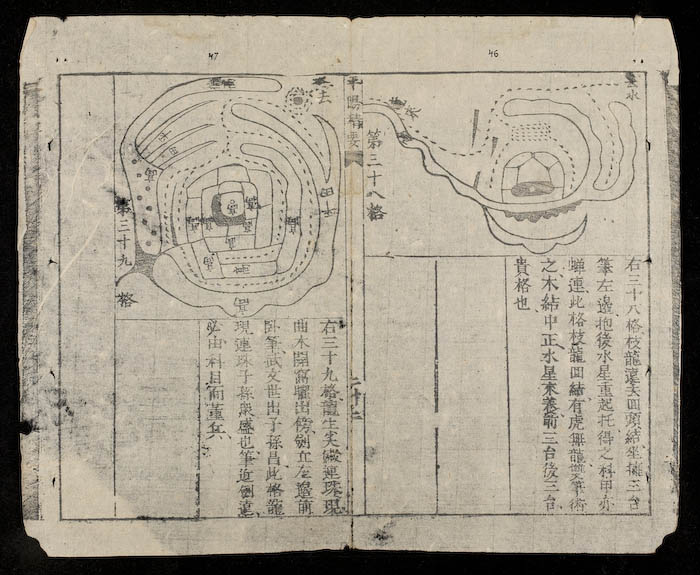 46
第三十八格
右三十八格枝龍滾去回頭結坐擁三台
筆左邊抱後水星重起托得之科甲亦
蟬連此格枝龍回結有虎無龍雙筆衛
之木結中正水星來養前三台後三台
貴格也
平陽精要
47
去
第三十九格
右三十九格龍生尖嫩連珠現
曲木開窩曜出傍劍立左邊前
臥筆武文世出子孫昌此格龍
現連珠子孫衆盛也筆近劍遠
必由科目而董兵